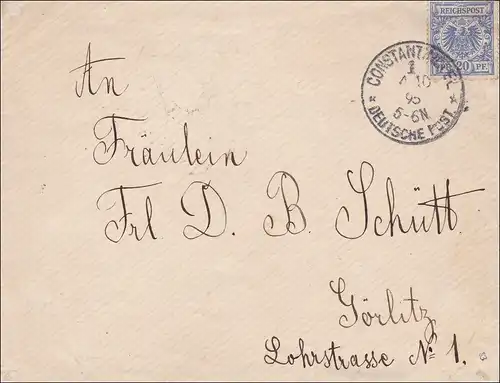 REICHSPOST
20 PF.
CONSTANTINOPEL
1
10
95
5-6N.
* DEUTSCHE POST *
An
Fräulein
Frl D. B. Schütt
Görlitz
Lohrstrasse No 1.